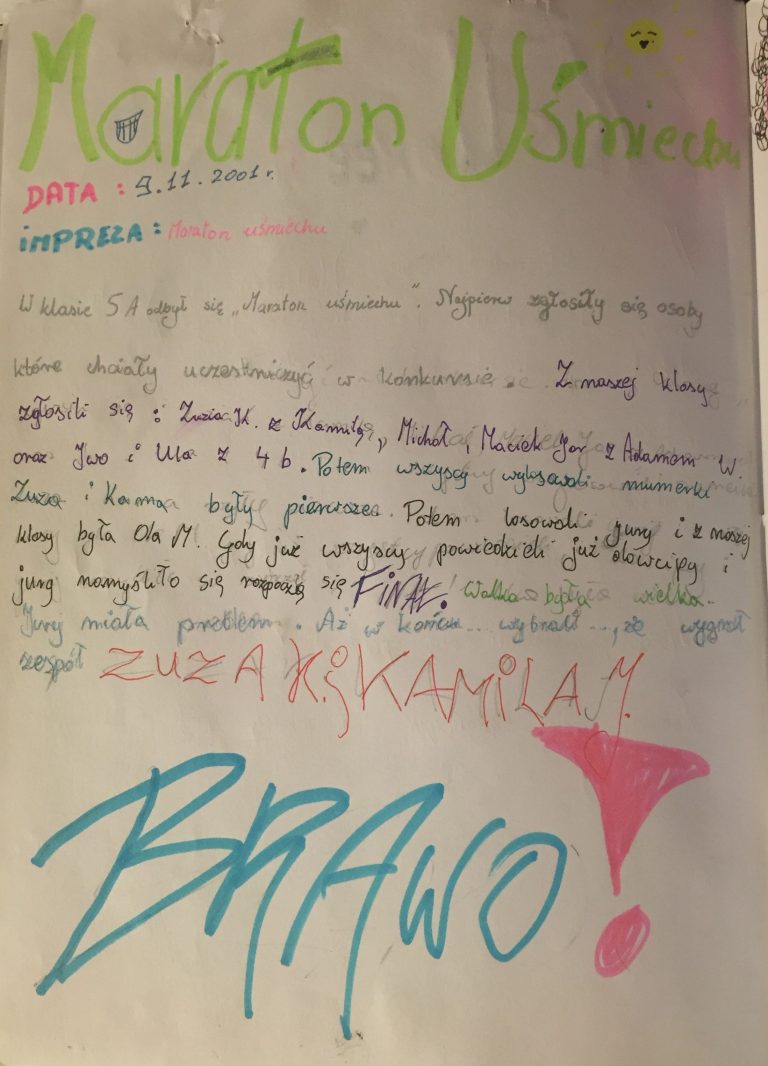 Maraton Uśmiechu
DATA : 9.11.2001 r.
IMPREZA : Maraton uśmiechu
W klasie 5A odbył się „Maraton uśmiechu”. Najpierw zgłosiły się osoby
które chciały uczestniczyć w konkursie. Z naszej klasy
zgłosili się : Zuzia K. z Kamilą, Michał, Maciek Jar z Adamem W.
oraz Iwo i Ula z 4 b. Potem wszyscy wylosowali numerki
Zuza i Kama były pierwsze. Potem losowali jury i z naszej
klasy była Ola M. Gdy już wszyscy powiedzieli już dowcipy i
jury namyśliło się rozpoczą się FINAŁ! Walka była wielka.
Jury miała problem. Aż w końcu... wybrali..., że wygrał
zespół ZUZA K. i KAMILA J.
BRAWO!